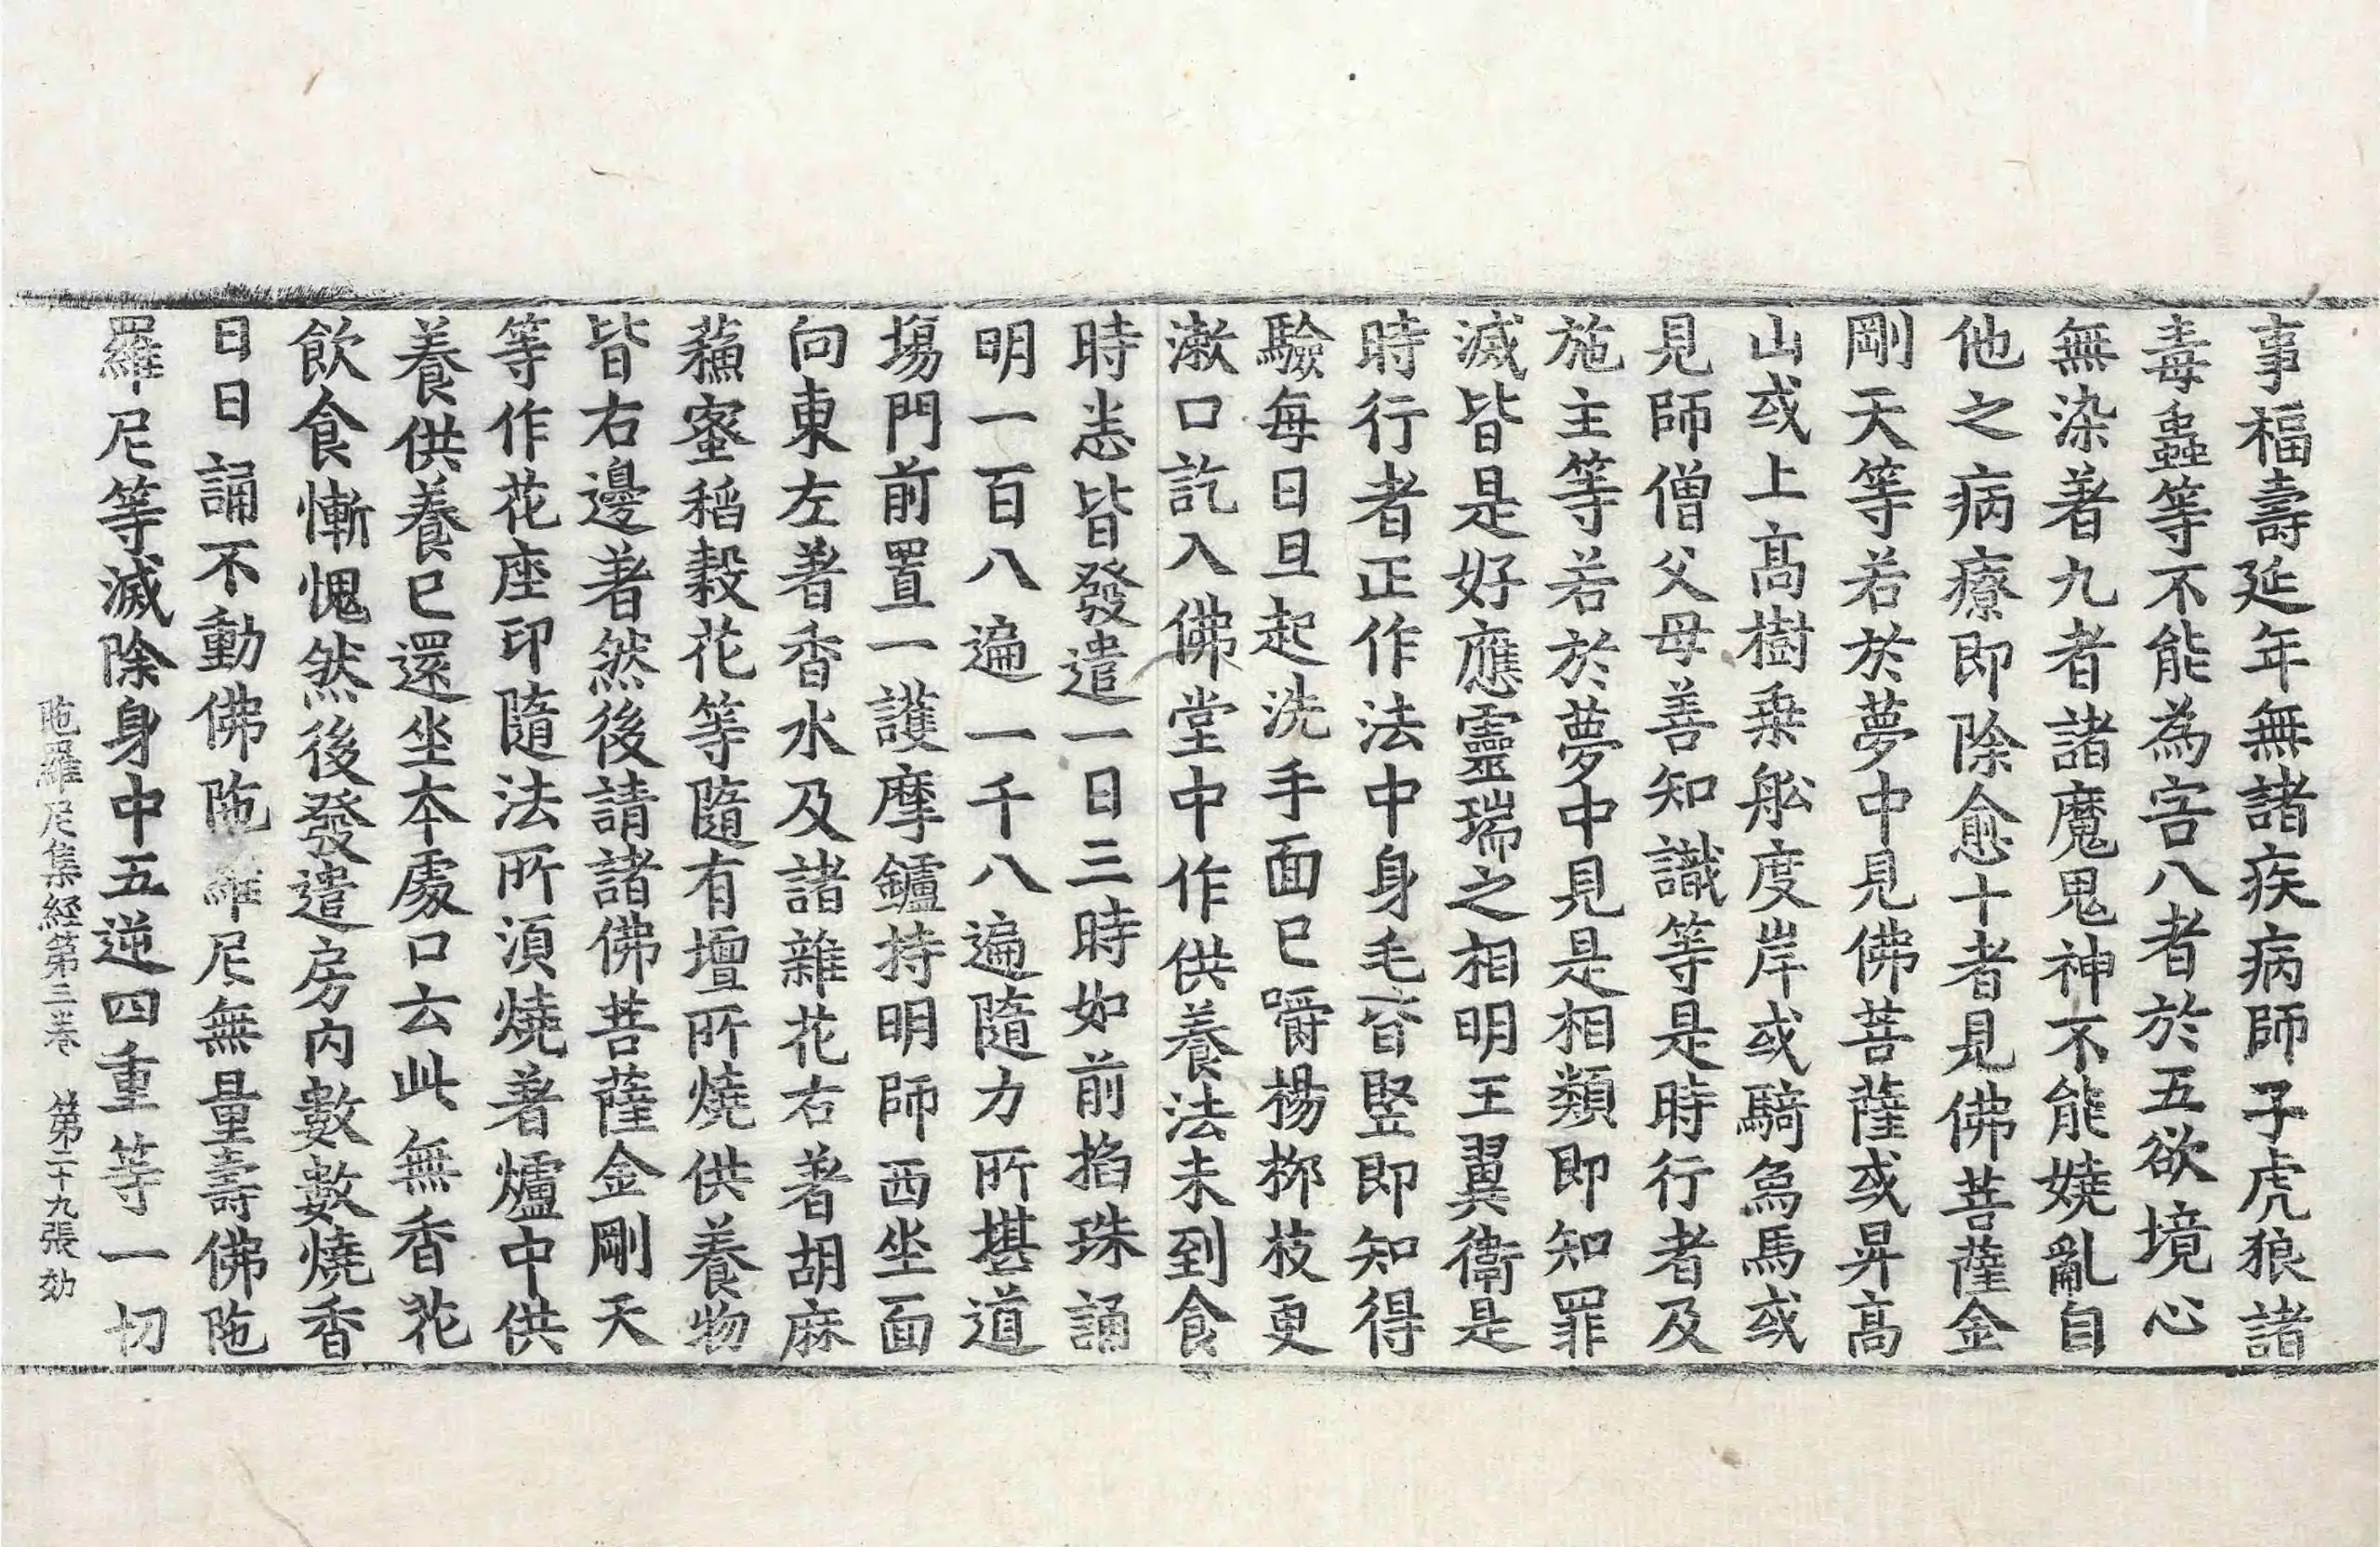 事福壽延年無諸疾病師子虎狼諸
毒蟲等不能為害八者於五欲境心
無染著九者諸魔鬼神不能嬈亂自
他之病療即除愈十者見佛菩薩金
剛天等若於夢中見佛菩薩或昇高
山或上高樹乗舩度岸或騎烏馬或
見師僧父母善知識等是時行者及
施主等若於夢中見是相類即知罪
滅皆是好應靈瑞之相明王翼衛是
時行者正作法中身毛皆竪即知得
驗每日旦起洗手面已嚼楊栁枝更
漱口訖入佛堂中作供養法未到食
時恙皆發遣一日三時如前掐珠誦
明一百八遍一千八遍隨力所堪道
塲門前置一護摩鑪持明師西坐面
向東左著香水及諸雜花右著胡麻
蘓蜜稻穀花等隨有壇所燒供養物
皆右邊著然後請諸佛菩薩金剛天
等作花座印隨法所湏燒著爐中供
養供養已還坐本處口云此無香花
飲食慚愧然後發遣房内數數燒香
日日誦不動佛陁羅尼無量壽佛陁
羅尼等滅除身中五逆四重等一切
陁羅尼集經第三卷　第二十九張　効